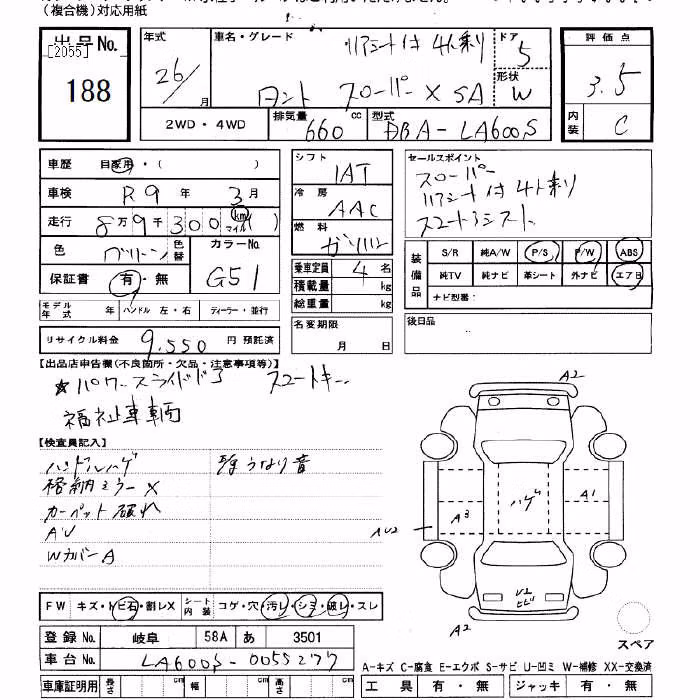 (複合機)対応用紙
出品No.
[2055]
188
年式
26/ 月
車名・グレード
リアシート付 4人乗り
タント スローパー X SA
ドア
5
形状
W
評価点
3.5
内装
C
2WD・4WD
排気量
660 cc
型式
DBA-LA600S
車歴 自家用・( )
車検 R9 年 3 月
走行 8万9千300 km マイル ( )
色 グリーン 色替 カラーNo. G51
保証書 有・無
モデル年式 年 ハンドル 左・右 ディーラー・並行
リサイクル料金 9,550 円 預託済
シフト
IAT
冷房
AAC
燃料
ガソリン
乗車定員 4 名
積載量 kg
総重量 kg
名変期限
月 日
セールスポイント
スローパー
リアシート付 4人乗り
スマートアシスト
装備品
S/R 純A/W P/S P/W ABS
純TV 純ナビ 革シート 外ナビ エアB
ナビ型番:
後日品
【出品店申告欄(不良箇所・欠品・注意事項等)】
★パワースライドドア スマートキー
福祉車輌
【検査員記入】
ハンドルハゲ
格納ミラーX
カーペット破れ
AU
WカバーA
うなり音
A2
ハゲ
A1
A3
AU2
U2
ヒビ
A2
スペア
FW キズ・トビ石・割レX シート内装 コゲ・穴・汚レ・シミ・破レ・スレ
登録No. 岐阜 58A あ 3501
車台No. LA600S-0055277
A-キズ C-腐食 E-エクボ S-サビ U-凹ミ W-補修 XX-交換済
車庫証明用 長さ cm 幅 cm 高さ cm
工具 有・無 ジャッキ 有・無